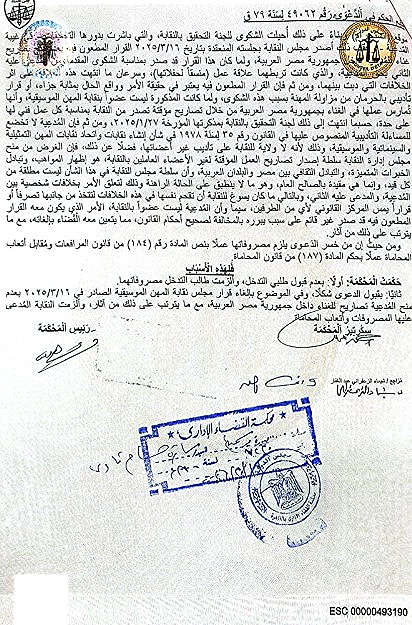 الحكم في الدعوى رقم ٤٩٠٦٢ لسنة ٧٩ ق
بناءً على ذلك أحيلت الشكوى للجنة التحقيق بالنقابة، والتي باشرت بدورها التحقيق
ذلك أصدر مجلس النقابة بجلسته المنعقدة بتاريخ ٢٠٢٥/٣/١٦ القرار المطعون
جمهورية مصر العربية، ولما كان هذا القرار قد صدر بمناسبة الشكوى المقدمة
والذي كانت تربطهما علاقة عمل (منسقاً لحفلاتها)، وسرعان ما انتهت هذه العلاقة على اثر
الخلافات التي دبت بينهما، ومن ثم فإن القرار المطعون فيه يعتبر في حقيقة الأمر وواقع الحال بمثابة جزاء، أو قرار
تأديبي بالحرمان من مزاولة المهنة بسبب هذه الشكوى، ولما كانت المذكورة ليست عضواً بنقابة المهن الموسيقية، وأنها
تمارس عملها في الغناء بجمهورية مصر العربية من خلال تصاريح مؤقتة تصدر من النقابة بمناسبة كل عمل فني لها
على حدة، حسبما انتهت إلى ذلك لجنة التحقيق بالنقابة بمذكرتها المؤرخة ٢٠٢٥/١/٢٧، ومن ثم فإن المدعية لا تخضع
للمساءلة التأديبية المنصوص عليها في القانون رقم ٣٥ لسنة ١٩٧٨ في شأن إنشاء نقابات واتحاد نقابات المهن التمثيلية
والسينمائية والموسيقية، وذلك لأنه لا ولاية للنقابة على تأديب غير أعضائها، فضلاً عن ذلك، فإن الغرض من منح
مجلس إدارة النقابة سلطة إصدار تصاريح العمل المؤقتة لغير الأعضاء العاملين بالنقابة، هو إظهار المواهب، وتبادل
الخبرات المتميزة، والتبادل الثقافي بين مصر والبلدان العربية، وأن سلطة مجلس النقابة في هذا الشأن ليست مطلقة من
كل قيد، وإنما هي مقيدة بالصالح العام، وهو ما لا ينطبق على الحالة الراهنة وذلك لتعلق الأمر بخلافات شخصية بين
المدعية، والمدعى عليه الثاني، وبالتالي ما كان يسوغ للنقابة أن تقحم نفسها في هذه الخلافات لتتخذ من جانبها تصرفاً أو
قراراً يمس المركز القانوني لأي من الطرفين، سيما وأن المدعية ليست عضواً بالنقابة، الأمر الذي يكون معه القرار
المطعون فيه قد صدر غير قائم على سبب يبرره بالمخالفة لصحيح أحكام القانون، مما يتعين معه القضاء بإلغائه، مع ما
يترتب على ذلك من آثار.
ومن حيث إن من خسر الدعوى يلزم مصروفاتها عملاً بنص المادة رقم (١٨٤) من قانون المرافعات ومقابل أتعاب
المحاماة عملاً بحكم المادة (١٨٧) من قانون المحاماة.
فلهذه الأسباب
حكمت المحكمة: أولاً: بعدم قبول طلبي التدخل، وألزمت طالب التدخل مصروفاتهما.
ثانياً: بقبول الدعوى شكلاً، وفي الموضوع بإلغاء قرار مجلس نقابة المهن الموسيقية الصادر في ٢٠٢٥/٣/١٦ بعدم
منح المدعية تصاريح للغناء داخل جمهورية مصر العربية، مع ما يترتب على ذلك من آثار، وألزمت النقابة المدعى
عليها المصروفات وأتعاب المحاماة.
سكرتير المحكمة
رئيس المحكمة
محكمة القضاء الإداري
ESC 00000493190